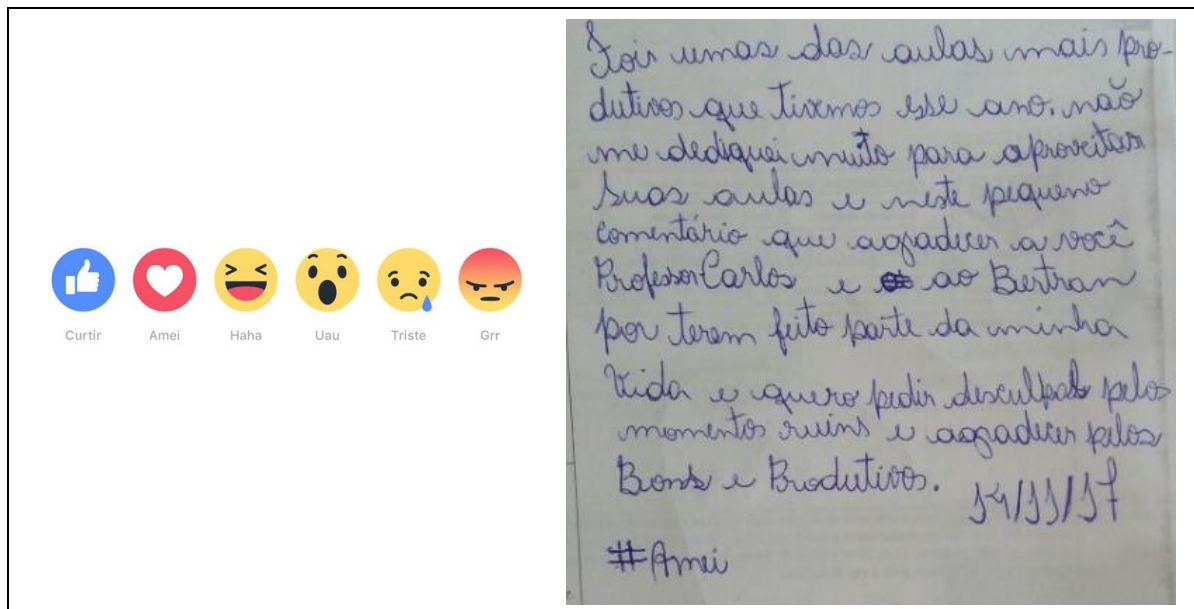 Curtir Amei Haha Uau Triste Grr
Foir umas das aulas mais pro-
dutivos que tivemos esse ano. não
me dediquei muito para aproveitar
suas aulas e neste pequeno
comentário que agradecer a você
Professor Carlos e ao Bertran
por terem feito parte da minha
Vida e quero pedir desculpas pelos
momentos ruins e agradecer pelos
Bons e Produtivos.
14/11/17
#Amei